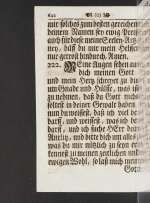 642 (o)
mir solches zum besten gereichen
deinem Namen sey ewig Preiß
auch für diese meine Seelen-
ney, hilff du mir mein Helffer
nur getrost hindurch, Amen.
222. Meine Augen sehen auf
dich meinen Gott
und mein Hertz schreyet zu dir
um Gnade und Hülffe, was ist
zu nehmen, daß du Gott
selbest in deiner Gewalt haben
Nun du weißest, daß ich
darff, und weissest, was ich be-
darff, und ich suche HErr dein
Antlitz, und bitte dich um alles
was du mir nützlich zu seyn er-
kennest zu meinen zeitlichen und
ewigen Wohl, so laß mich mein
Gott